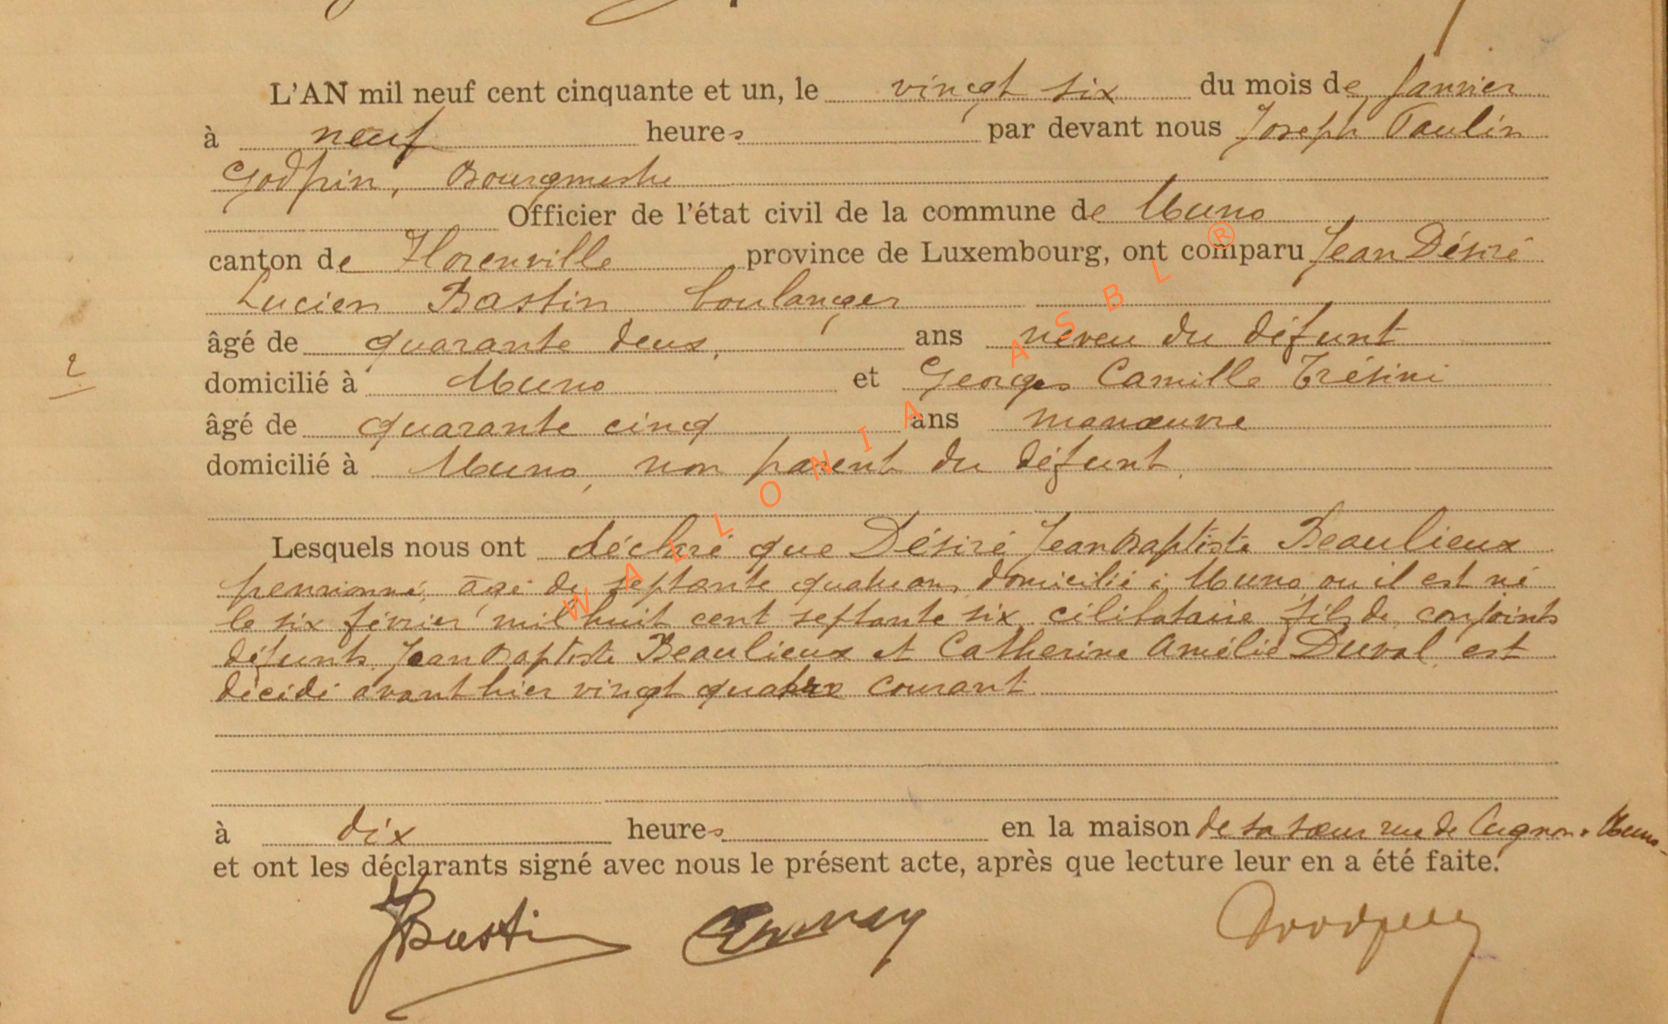 L'AN mil neuf cent cinquante et un, le vingt six du mois de Janvier
à neuf heures par devant nous Joseph Paulin
Godfrin, Bourgmestre
Officier de l'état civil de la commune de Muno
canton de Florenville province de Luxembourg, ont comparu Jean Désiré
Lucien Bastin boulanger
âgé de quarante deux, ans neveu du défunt
domicilié à Muno et Georges Camille Trésini
âgé de quarante cinq ans manœuvre
domicilié à Muno, non parent du défunt,
Lesquels nous ont déclaré que Désiré Jean Baptiste Beaulieux
pensionné, âgé de septante quatre ans, domicilié à Muno où il est né
le six février mil huit cent septante six, célibataire fils de conjoints
défunts, Jean Baptiste Beaulieux et Catherine Amélie Duval, est
décédé avant hier vingt quatre courant
à dix heures en la maison de sa sœur rue de Cugnon à Muno
et ont les déclarants signé avec nous le présent acte, après que lecture leur en a été faite.
JBastin
2
WALLONIA ASBL ®